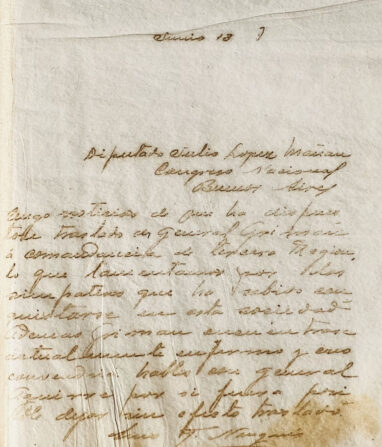 Junio 13
Diputado Julio Lopez Mañan
Congreso Nacional
Buenos Aires
Tengo noticias de que ha dispues
tose traslado de General Griman
á comandancia de tercera Region
lo que lamentamos por las
simpatias que ha sabido con
quistarse en esta sociedad
Ademas Griman encuentrase
actualmente enfermo y creo
convendria hables con general
Aguirre por si fuese posi
ble dejar sin efecto traslado
Luis F. Nougués